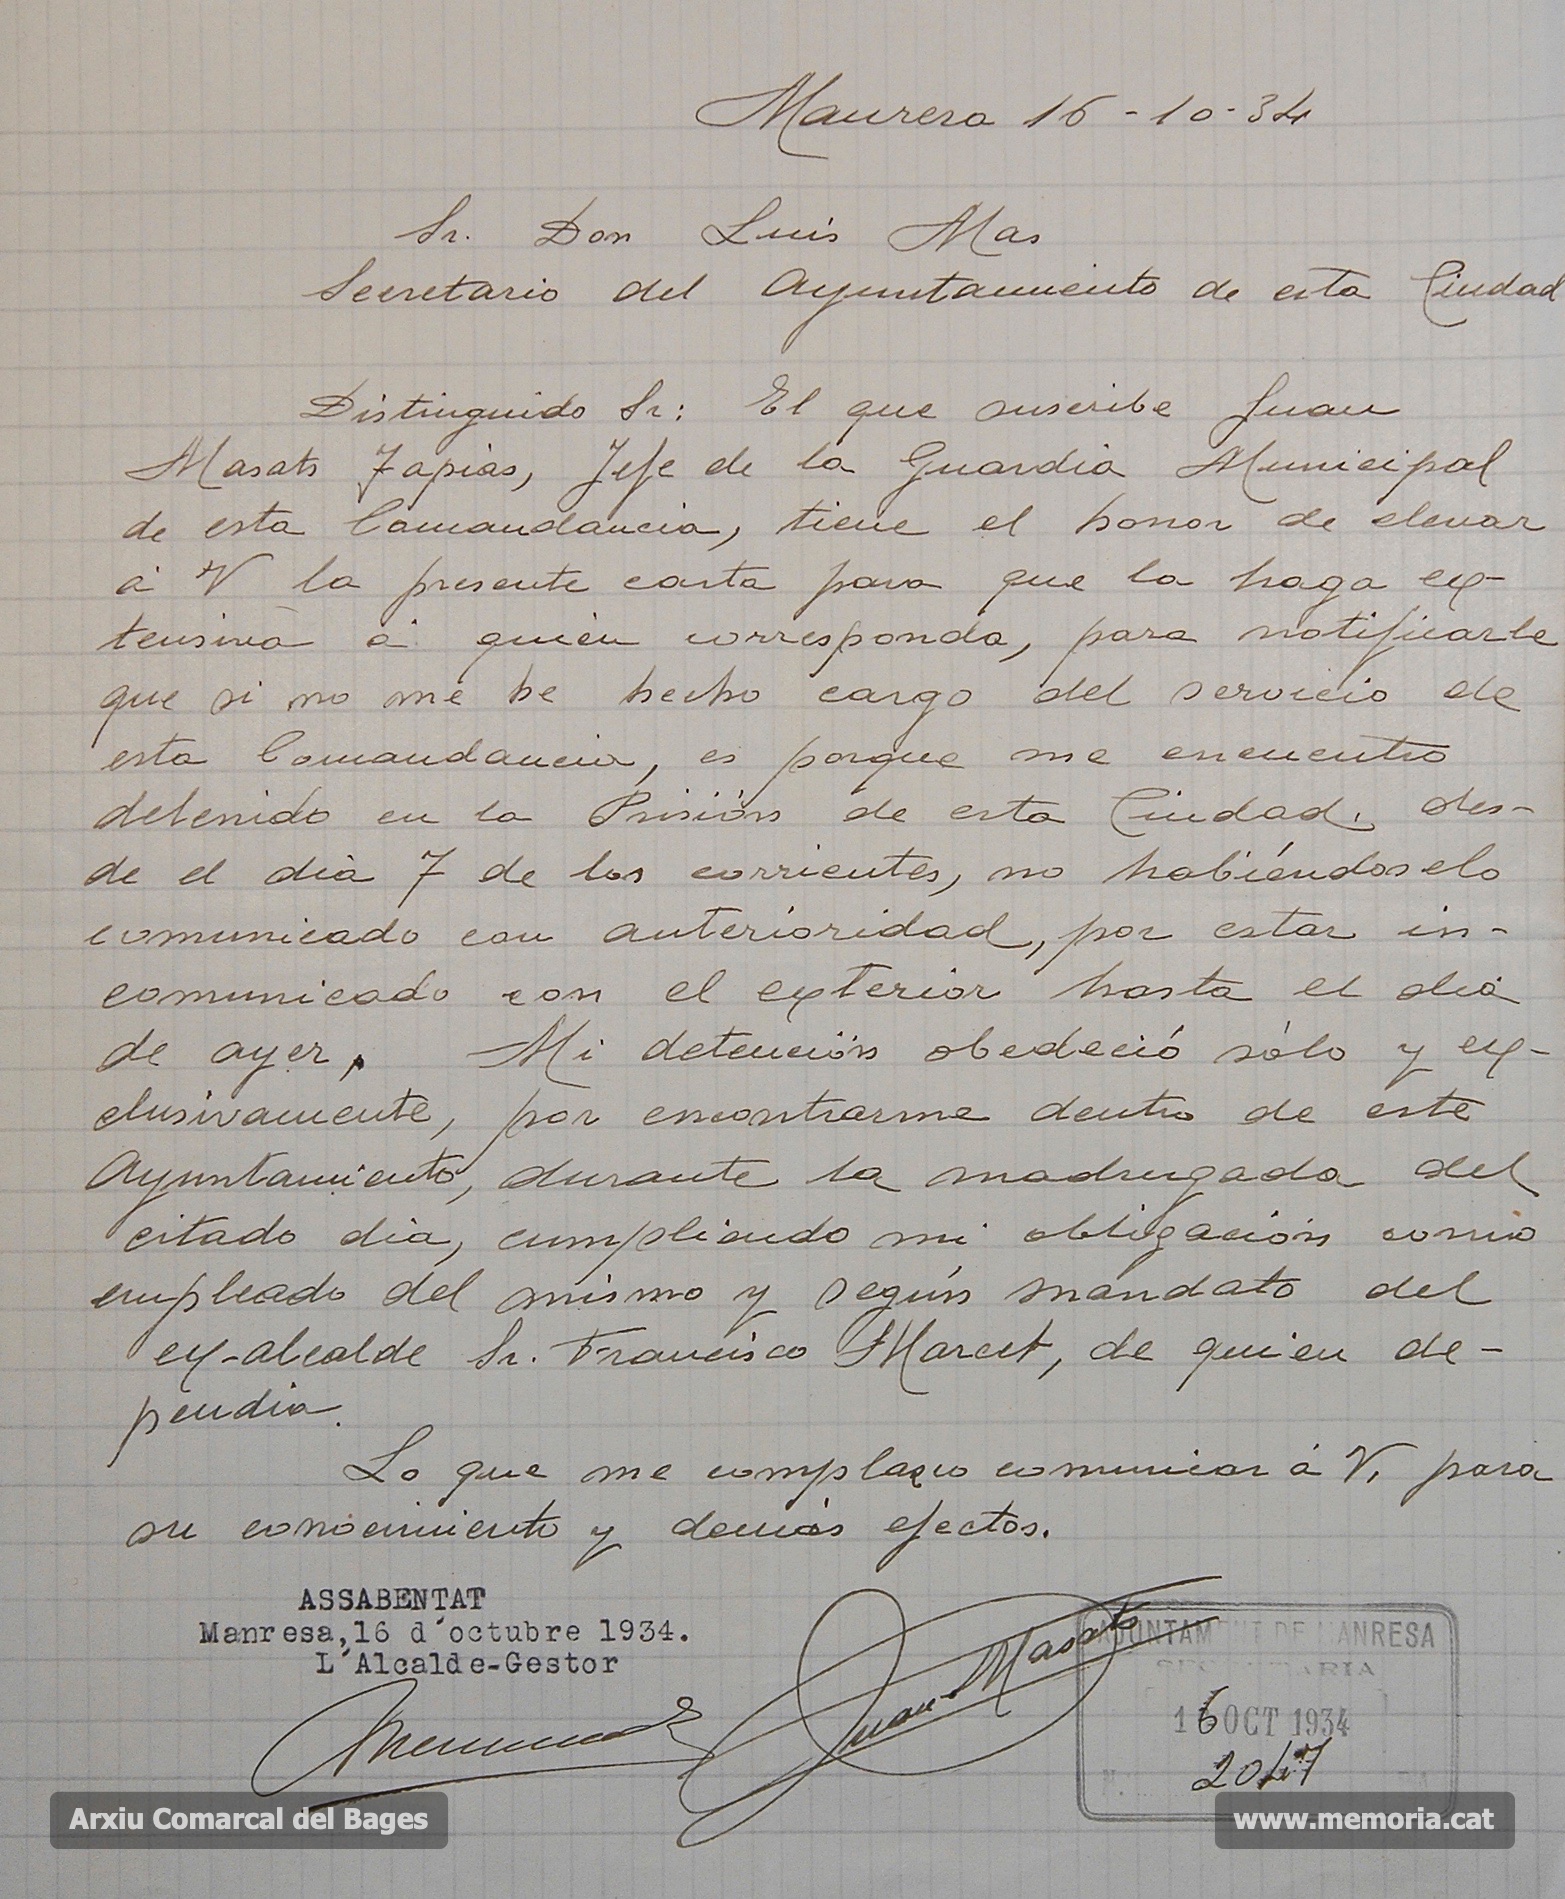 Manresa 16-10-34
Sr. Don Luis Mas
Secretario del Ayuntamiento de esta Ciudad
Distinguido Sr: El que suscribe Juan
Masats Tapias, Jefe de la Guardia Municipal
de esta Comandancia, tiene el honor de elevar
á V la presente carta para que la haga ex-
tensiva á quien corresponda, para notificarle
que si no me he hecho cargo del servicio de
esta Comandancia, es porque me encuentro
detenido en la Prisión de esta Ciudad, des-
de el dia 7 de los corrientes, no habiéndoselo
comunicado con anterioridad, por estar in-
comunicado con el exterior hasta el dia
de ayer. Mi detención obedeció sólo y ex-
clusivamente, por encontrarme dentro de este
Ayuntamiento, durante la madrugada del
citado dia, cumpliendo mi obligación como
empleado del mismo y según mandato del
ex-alcalde Sr. Francisco Marcet, de quien de-
pendia.
Lo que me complazco comunicar á V. para
su conocimiento y demás efectos.
ASSABENTAT
Manresa,16 d'octubre 1934.
L'Alcalde-Gestor
Juan Masats
AJUNTAMENT DE MANRESA
SECRETARIA
16 OCT 1934
2047
Arxiu Comarcal del Bages
www.memoria.cat